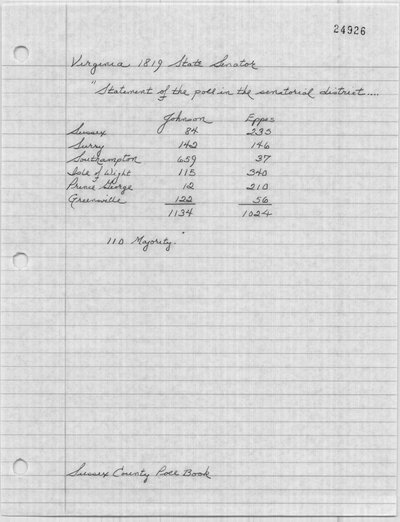 24926
Virginia 1819 State Senator
"Statement of the poll in the senatorial district.....
Johnson Eppes
Sussex 84 235
Surry 142 146
Southampton 659 37
Isle of Wight 115 340
Prince George 12 210
Greensville 122 56
1134 1024
110 Majority."
Sussex County Poll Book